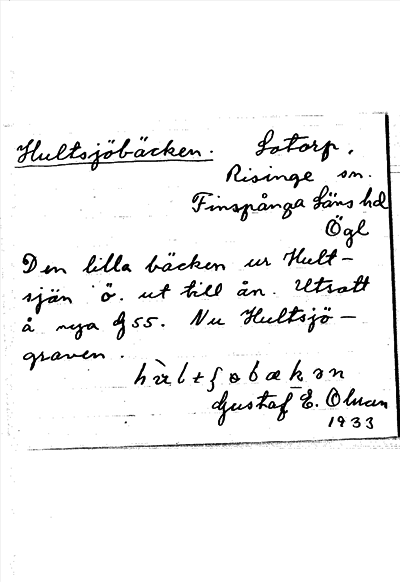 Hultsjöbäcken. Lotorp,
Risinge sn.
Finspånga läns hd
Ögl
Den lilla bäcken ur Hult-
sjön ö. ut till ån. Utsatt
å nya G 55. Nu Hultsjö-
graven.
Gustaf E. Olman
1933